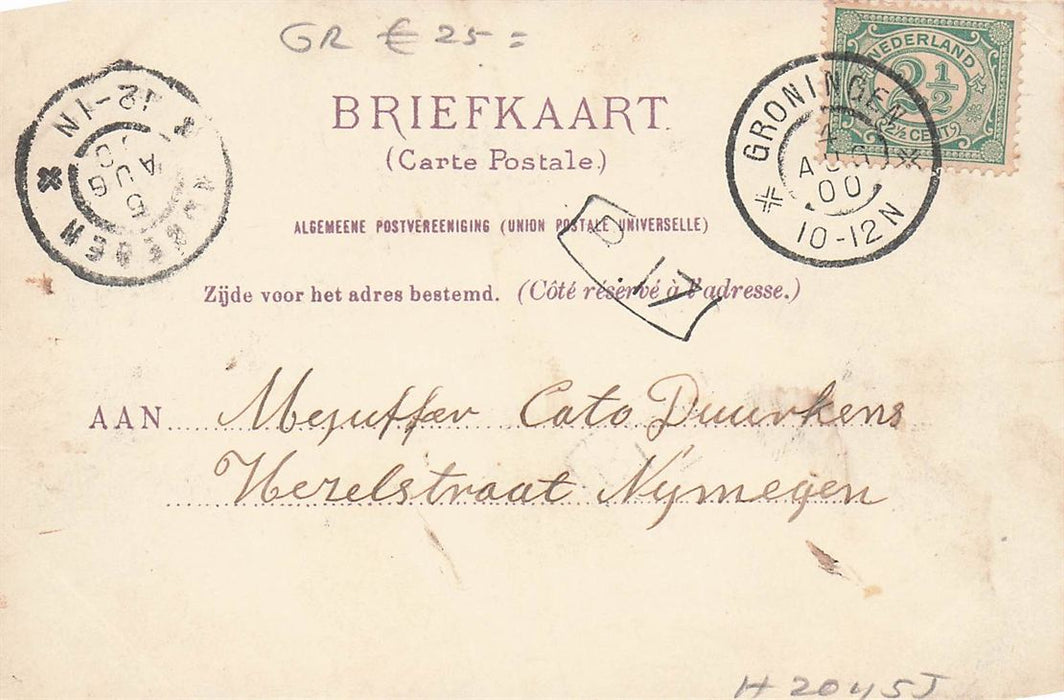 GR € 25=
NEDERLAND
2½
2½ CENT
GRONINGEN
4
AUG
00
10-12N
12-1N
5
AUG
00
BRIEFKAART.
(Carte Postale.)
ALGEMEENE POSTVEREENIGING (UNION POSTALE UNIVERSELLE)
Zijde voor het adres bestemd. (Côté réservé à l'adresse.)
AAN Mejuffer Cato Duurkens
Hezelstraat Nijmegen
H 2045J